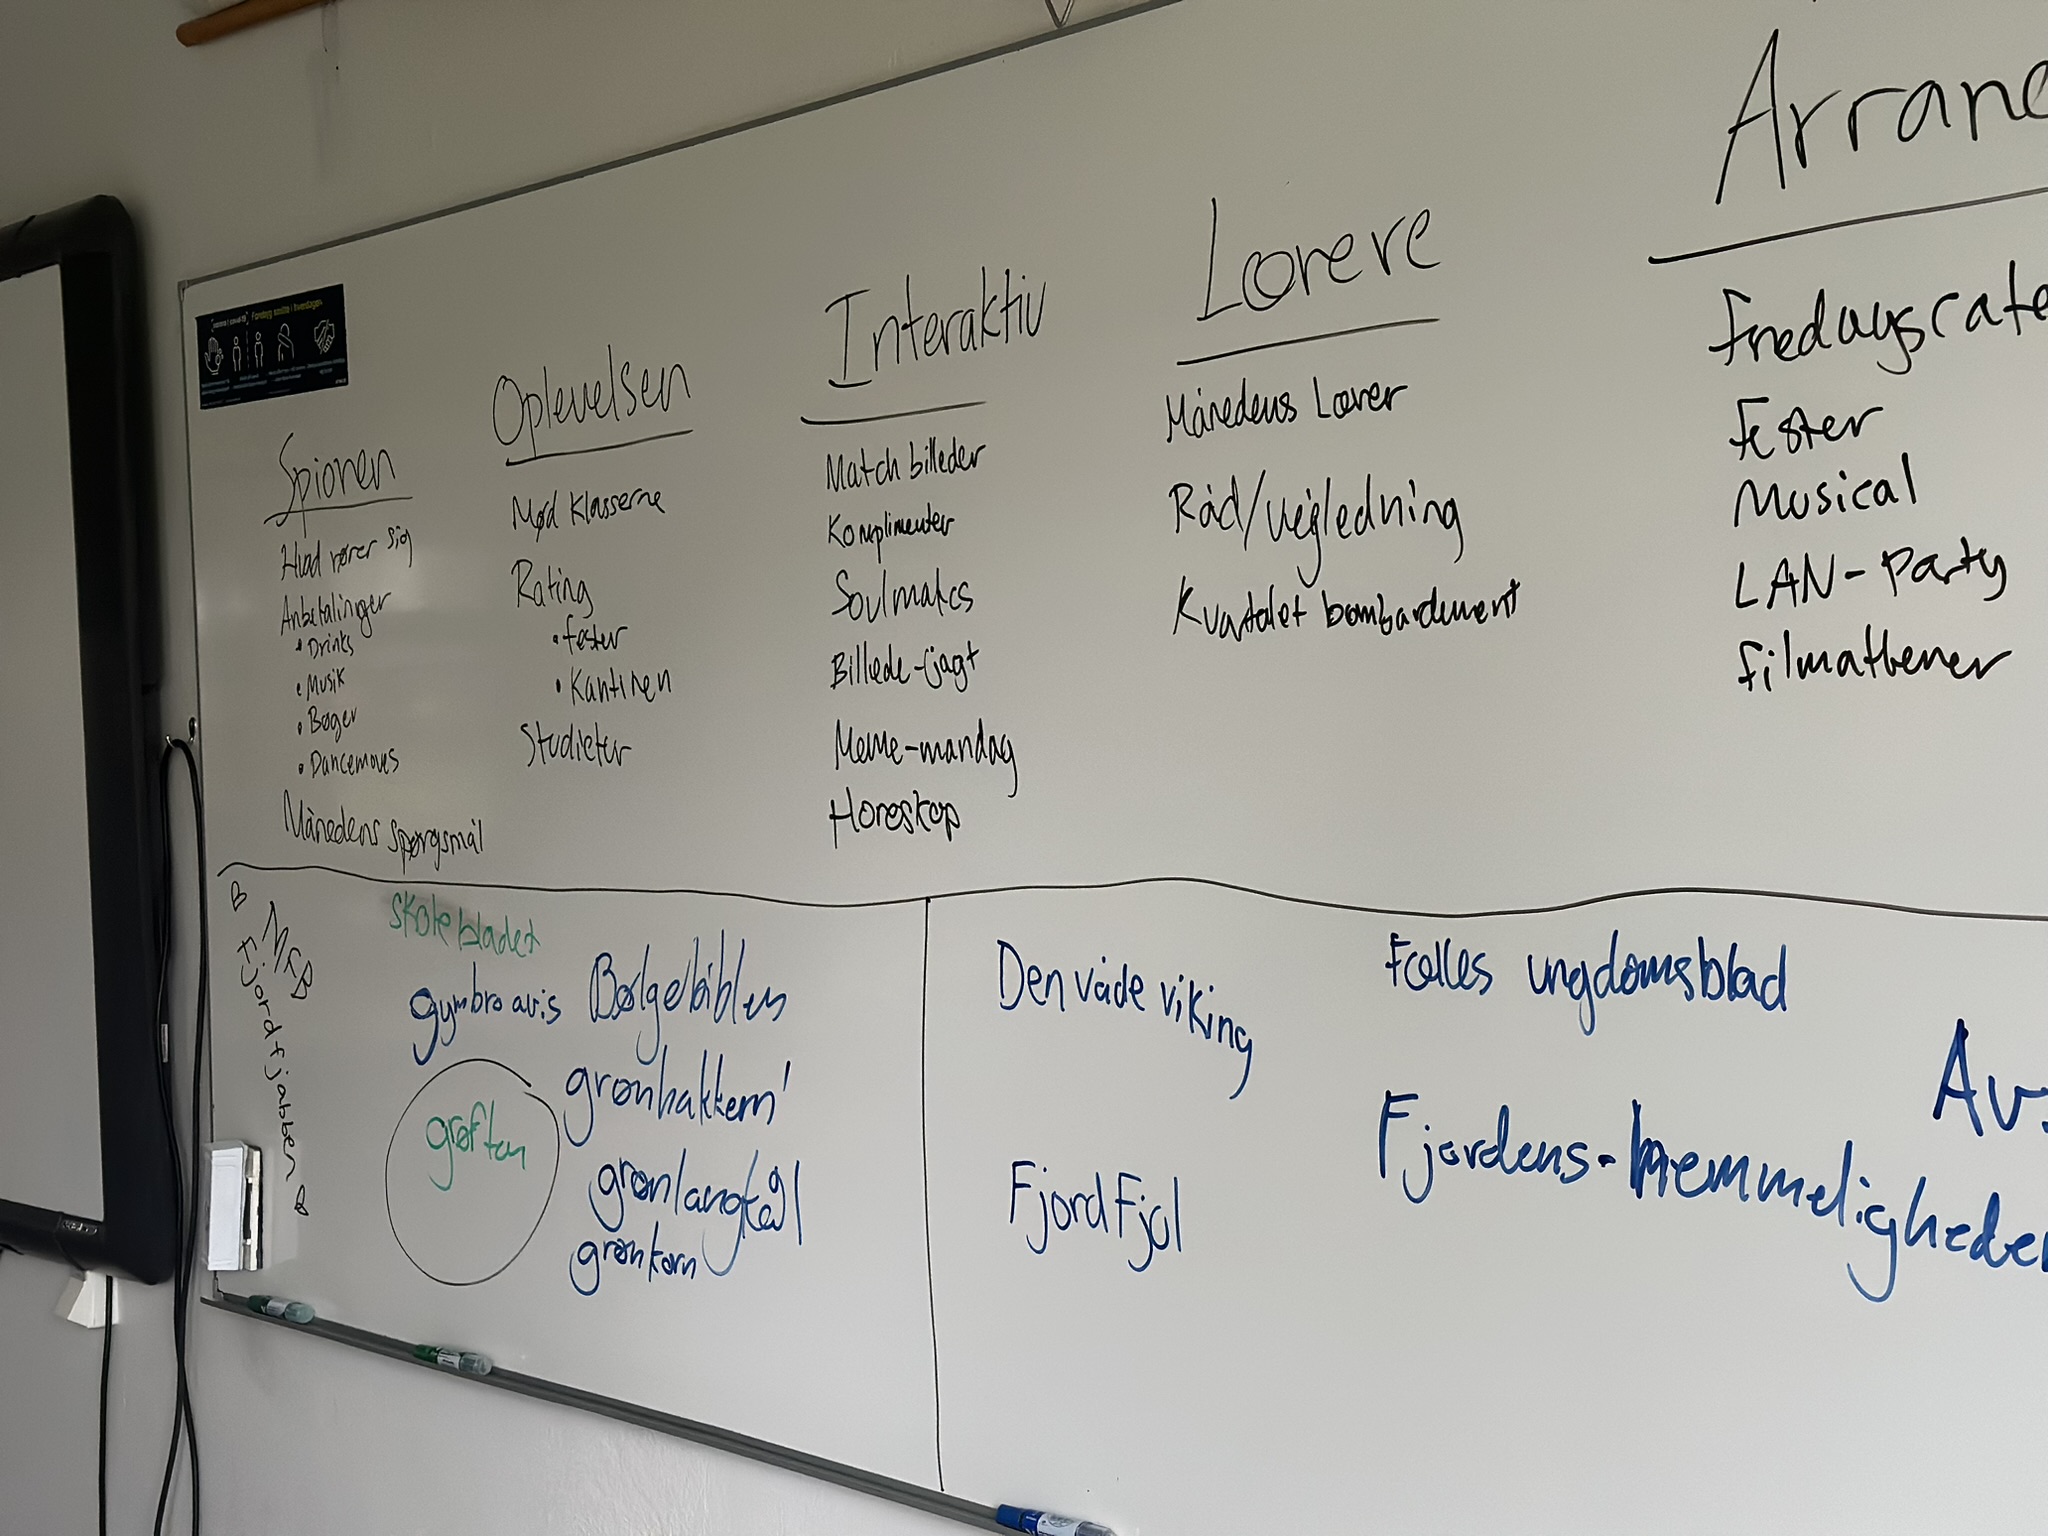 Spionen
Hvad rører sig
Anbetalinger
• Drinks
• Musik
• Bøger
• Dancemoves
Månedens spørgsmål
Oplevelsen
Mød klasserne
Rating
• fester
• Kantinen
Studieter
Interaktiv
Match billeder
Komplimenter
Soulmates
Billede-jagt
Meme-mandag
Horoskop
Lærere
Månedens Lærer
Råd/vejledning
Kvartalet bombardement
Arrang
Fredagscafe
Fester
Musical
LAN-Party
Filmaftener
Fjordfjabben
skolebladet
gymbro avis
Bølgebiblen
grønhakkern'
grøften
grønlangkål
grønkorn
Den våde viking
FjordFjol
Fælles ungdomsblad
Fjordens-hemmeligheder